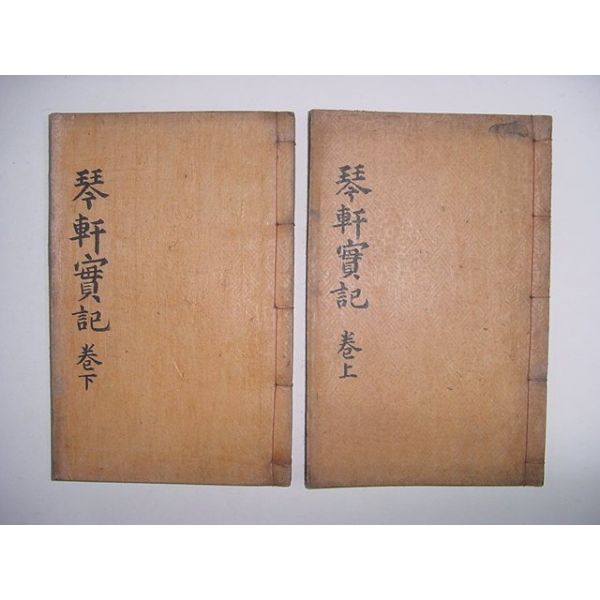 琴軒實記 卷上
琴軒實記 卷下